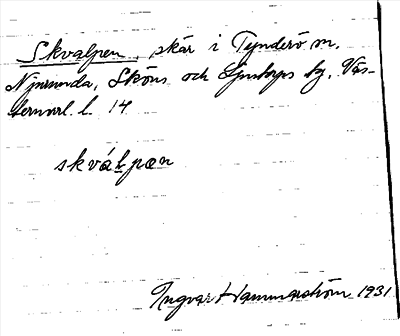 Skvalpen, skär i Tynderö sn,
Njurunda, Sköns och Ljustorps tg, Väs-
ternorrl. l. 14
skválpæn
Ingvar Hammarström 1931